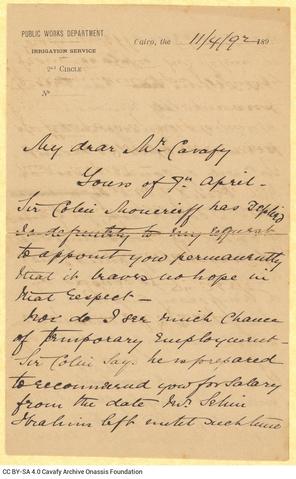 PUBLIC WORKS DEPARTMENT
IRRIGATION SERVICE
2ND CIRCLE
No
Cairo, the 11/4/92 189
My dear Mr. Cavafy
Yours of 7th April -
Sir Colin Moncrieff has replied
so definitely to my request
to appoint you permanently
that it leaves no hope in
that respect -
Nor do I see much chance
of temporary employment -
Sir Colin says he is prepared
to recommend you for salary
from the date Mr. Selim
Ibrahim left until such time
CC BY-SA 4.0 Cavafy Archive Onassis Foundation